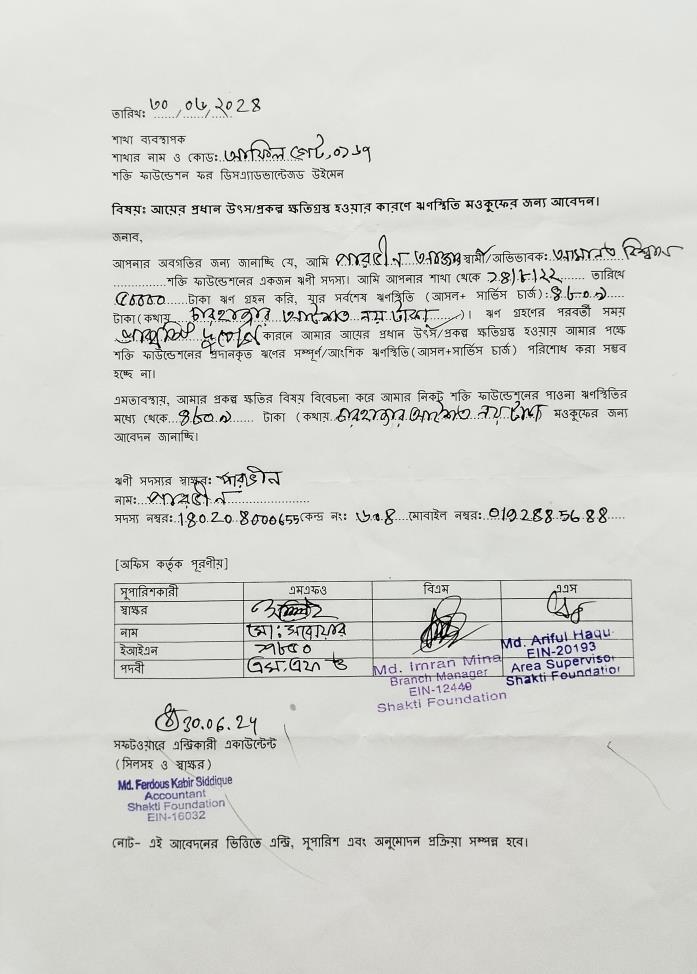 তারিখ: ৩০/০৬/২০২৪
শাখা ব্যবস্থাপক
শাখার নাম ও কোড: আফিল গেট, ০১৬৭
শক্তি ফাউন্ডেশন ফর ডিসএ্যাডভান্টেজড উইমেন
বিষয়: আয়ের প্রধান উৎস/প্রকল্প ক্ষতিগ্রস্ত হওয়ার কারণে ঋণস্থিতি মওকুফের জন্য আবেদন।
জনাব,
আপনার অবগতির জন্য জানাচ্ছি যে, আমি পারভীন আক্তার স্বামী/অভিভাবক: আমানত বিশ্বাস
শক্তি ফাউন্ডেশনের একজন ঋণী সদস্য। আমি আপনার শাখা থেকে ২৪/৮/২২ তারিখে
৫০০০০ টাকা ঋণ গ্রহন করি, যার সর্বশেষ ঋণস্থিতি (আসল+ সার্ভিস চার্জ): ৪৮০৯
টাকা(কথায় চারহাজার আটশত নয় টাকা)। ঋণ গ্রহণের পরবর্তী সময়
কারনে আমার আয়ের প্রধান উৎস/প্রকল্প ক্ষতিগ্রস্ত হওয়ায় আমার পক্ষে
শক্তি ফাউন্ডেশনের প্রদানকৃত ঋণের সম্পূর্ণ/আংশিক ঋণস্থিতি(আসল+সার্ভিস চার্জ) পরিশোধ করা সম্ভব
হচ্ছে না।
এমতাবস্থায়, আমার প্রকল্প ক্ষতির বিষয় বিবেচনা করে আমার নিকট শক্তি ফাউন্ডেশনের পাওনা ঋণস্থিতির
মধ্যে থেকে ৪৮০৯ টাকা (কথায় চারহাজার আটশত নয় টাকা মওকুফের জন্য
আবেদন জানাচ্ছি।
ঋণী সদস্যর স্বাক্ষর: পারভীন
নাম: পারভীন
সদস্য নম্বর: 180208000655 কেন্দ্র নং: ৬০৪ মোবাইল নম্বর: 019288 5688
[অফিস কর্তৃক পূরণীয়]
সুপারিশকারী এমএফও বিএম এএস
স্বাক্ষর
নাম মো: সরোয়ার
ইআইএন
পদবী এম এফ ও
Md. Imran Mina
Branch Manager
EIN-12449
Shakti Foundation
Md. Ariful Haqu
EIN-20193
Area Supervisor
Shakti Foundation
30.06.24
সফটওয়ারে এন্ট্রিকারী একাউন্টেন্ট
(সিলসহ ও স্বাক্ষর)
Md. Ferdous Kabir Siddique
Accountant
Shakti Foundation
EIN-16032
নোট- এই আবেদনের ভিত্তিতে এন্ট্রি, সুপারিশ এবং অনুমোদন প্রক্রিয়া সম্পন্ন হবে।